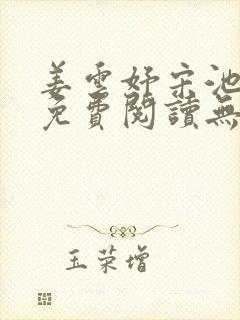 姜雲妤宋池
免費閱讀無
玉荣增